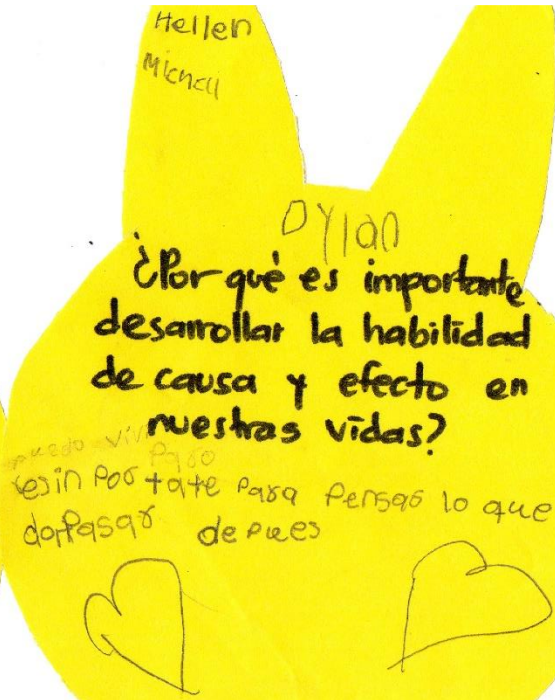 Hellen
Michell
Dylan
¿Por qué es importante
desarrollar la habilidad
de causa y efecto en
nuestras vidas?
puedo vivi
Paro
Para Pensar lo que
depues